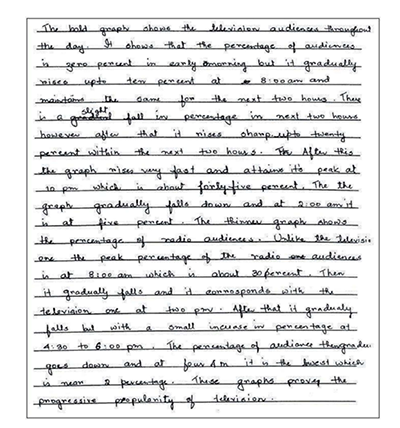 The bold graph shows the television audiences throughout
the day. It shows that the percentage of audiences
is zero percent in early morning but it gradually
rises upto ten percent at 8:00 am and
maintains the same for the next two hours. There
is a slight fall in percentage in next two hours
however after that it rises sharp upto twenty
percent within the next two hours. After this
the graph rises very fast and attains its peak at
10 pm which is about forty-five percent. The the
graph gradually falls down and at 2:00 am it
is at five percent. The thinner graph shows
the percentage of radio audiences. Unlike the televisio
one the peak percentage of the radio audiences
is at 8:00 am which is about 30 percent. Then
it gradually falls and it corresponds with the
television one at two pm. After that it gradualy
falls but with a small increase in percentage at
4:30 to 6:00 pm. The percentage of audience then gradu
goes down and at four am it is the lowest which
is near 2 percentage. These graphs proves the
progressive popularity of television.